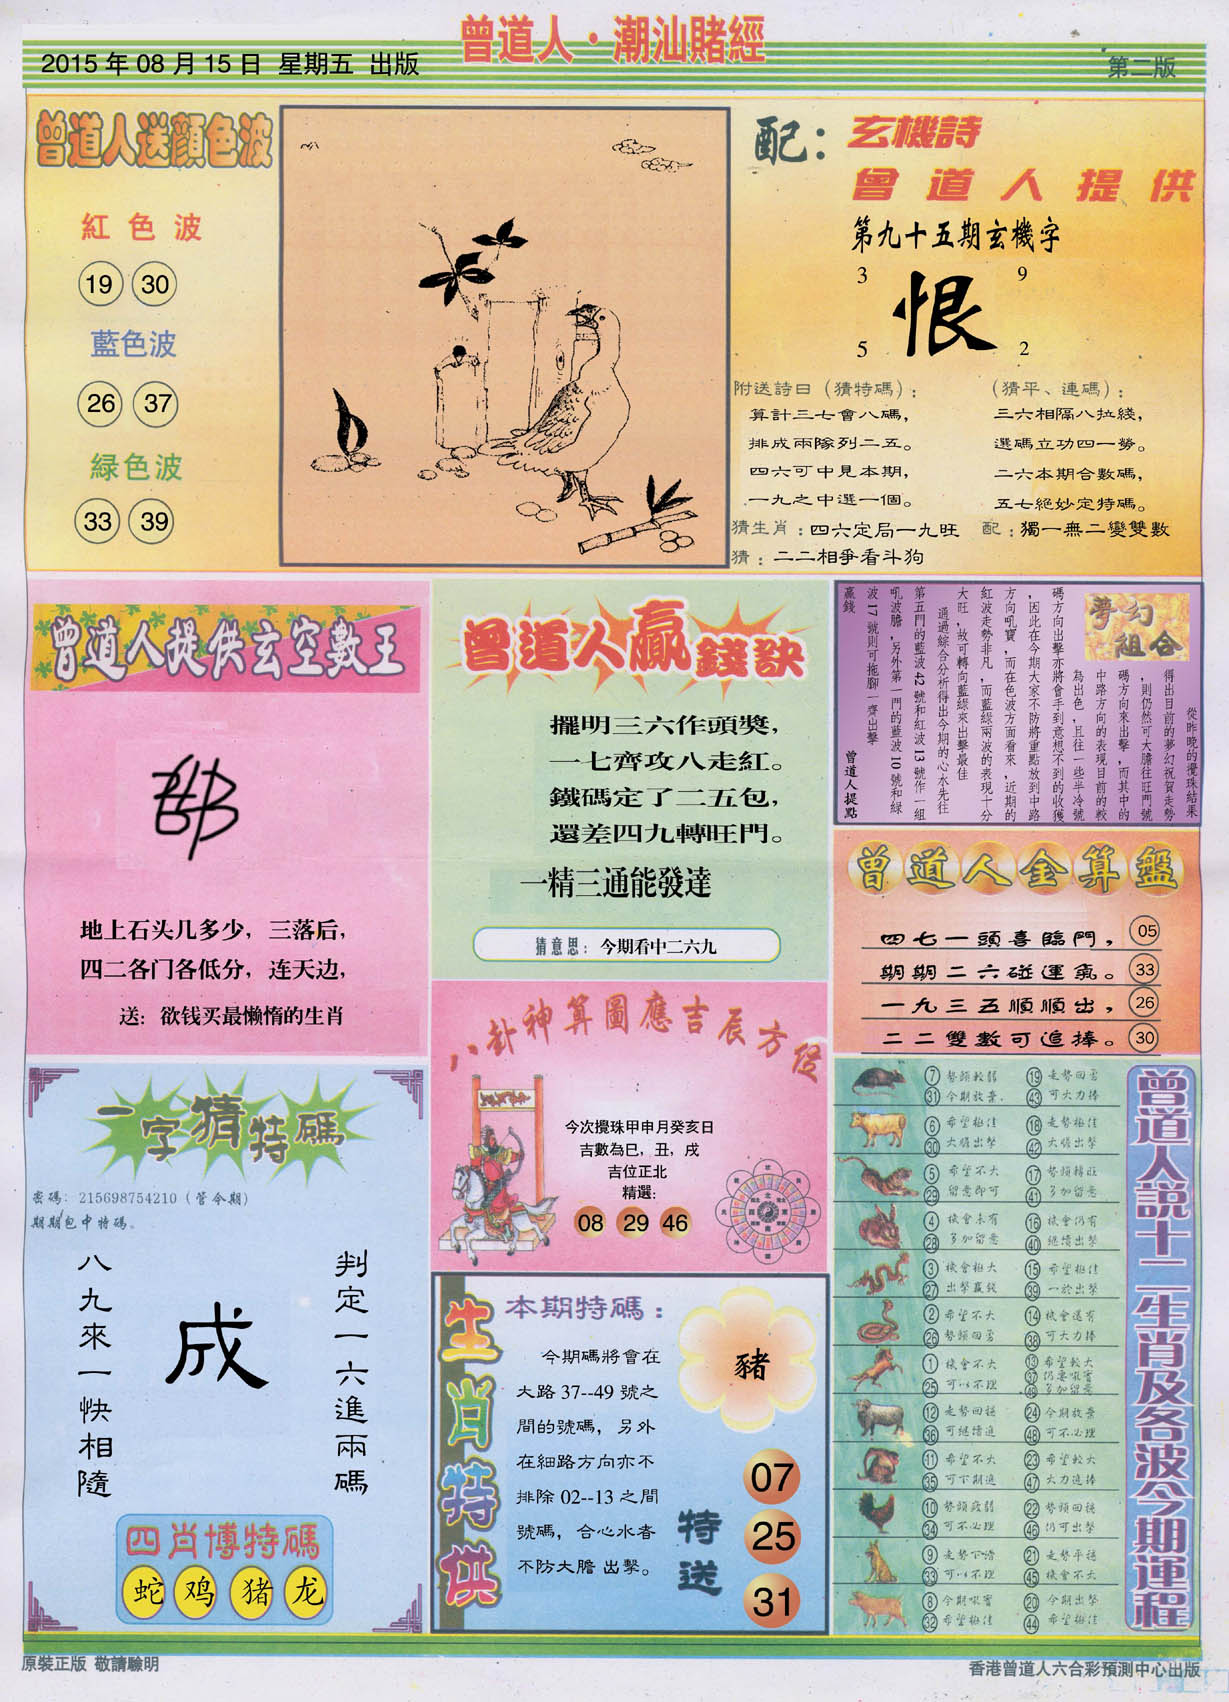 曾道人·潮汕賭經
2015年08月15日 星期五 出版
第二版
曾道人送顏色波
紅色波
19 30
藍色波
26 37
緑色波
33 39
配：玄機詩
曾道人提供
第九十五期玄機字
3 9
恨
5 2
附送詩曰（猜特碼）：
算計三七會八碼，
排成兩隊列二五。
四六可中見本期，
一九之中選一個。
（猜平、連碼）：
三六相隔八拉綫，
選碼立功四一勞。
二六本期合數碼，
五七絕妙定特碼。
猜生肖：四六定局一九旺
配：獨一無二變雙數
猜：二二相爭看斗狗
曾道人提供玄空數王
地上石头几多少，三落后，
四二各门各低分，连天边，
送：欲钱买最懒惰的生肖
曾道人贏錢訣
擺明三六作頭獎，
一七齊攻八走紅。
鐵碼定了二五包，
還差四九轉旺門。
一精三通能發達
猜意思：今期看中二六九
夢幻組合
從昨晚的攪珠結果
得出目前的夢幻祝賀走勢
，則仍然可大膽往旺門號
碼方向來出擊，而其中的
中路方向的表現目前的較
為出色，且往一些半冷號
碼方向出擊亦將會手到意想不到的收獲
，因此在今期大家不防將重點放到中路
方向吼寶，而在色波方面看來，近期的
紅波走勢非凡，而藍綠兩波的表現十分
大旺，故可轉向藍綠來出擊最佳
通過綜合分析得出今期的心水先往
第五門的藍波42號和紅波13號作一組
吼波膽，另外第一門的藍波10號和綠
波17號則可拖腳一齊出擊
贏錢
曾道人提點
曾道人金算盤
四七一頭喜臨門， 05
期期二六碰運氣。 33
一九三五順順出， 26
二二雙數可追捧。 30
八卦神算圖應吉辰方位
今次攪珠甲申月癸亥日
吉數為巳，丑，戌
吉位正北
精選：
08 29 46
一字猜特碼
密碼：215698754210（管今期）
期期包中特碼。
判定一六進兩碼
成
八九來一快相隨
四肖博特碼
蛇 鸡 猪 龙
生肖特供
本期特碼：
豬
今期碼將會在
大路37--49號之
間的號碼，另外
在細路方向亦不
排除02--13之間
號碼，合心水者
不防大膽出擊。
特送
07
25
31
曾道人說十二生肖及各波今期運程
7 勢頭較弱 19 走勢回勇
31 今期放棄 43 可大力捧
6 希望極佳 18 走勢極佳
30 大膽出擊 42 大膽出擊
5 希望不大 17 勢頭轉旺
29 留意即可 41 多加留意
4 機會未有 16 機會仍有
28 多加留意 40 繼續出擊
3 機會極大 15 希望極佳
27 出擊贏錢 39 一於出擊
2 希望不大 14 機會還有
26 勢頭回勇 38 可大力捧
1 機會不大 13 希望較大
25 可以不理 37 仍要吼實
49 多加留意
12 走勢回穩 24 今期放棄
36 可繼續追 48 可不必理
11 希望不大 23 希望較大
35 可下期追 47 大力追捧
10 勢頭疲弱 22 勢頭回穩
34 可不必理 46 仍可出擊
9 走勢下滑 21 走勢平穩
33 可以不理 45 機會不大
8 今期吼實 20 今期出擊
32 希望極佳 44 希望極佳
原裝正版 敬請驗明
香港曾道人六合彩預測中心出版